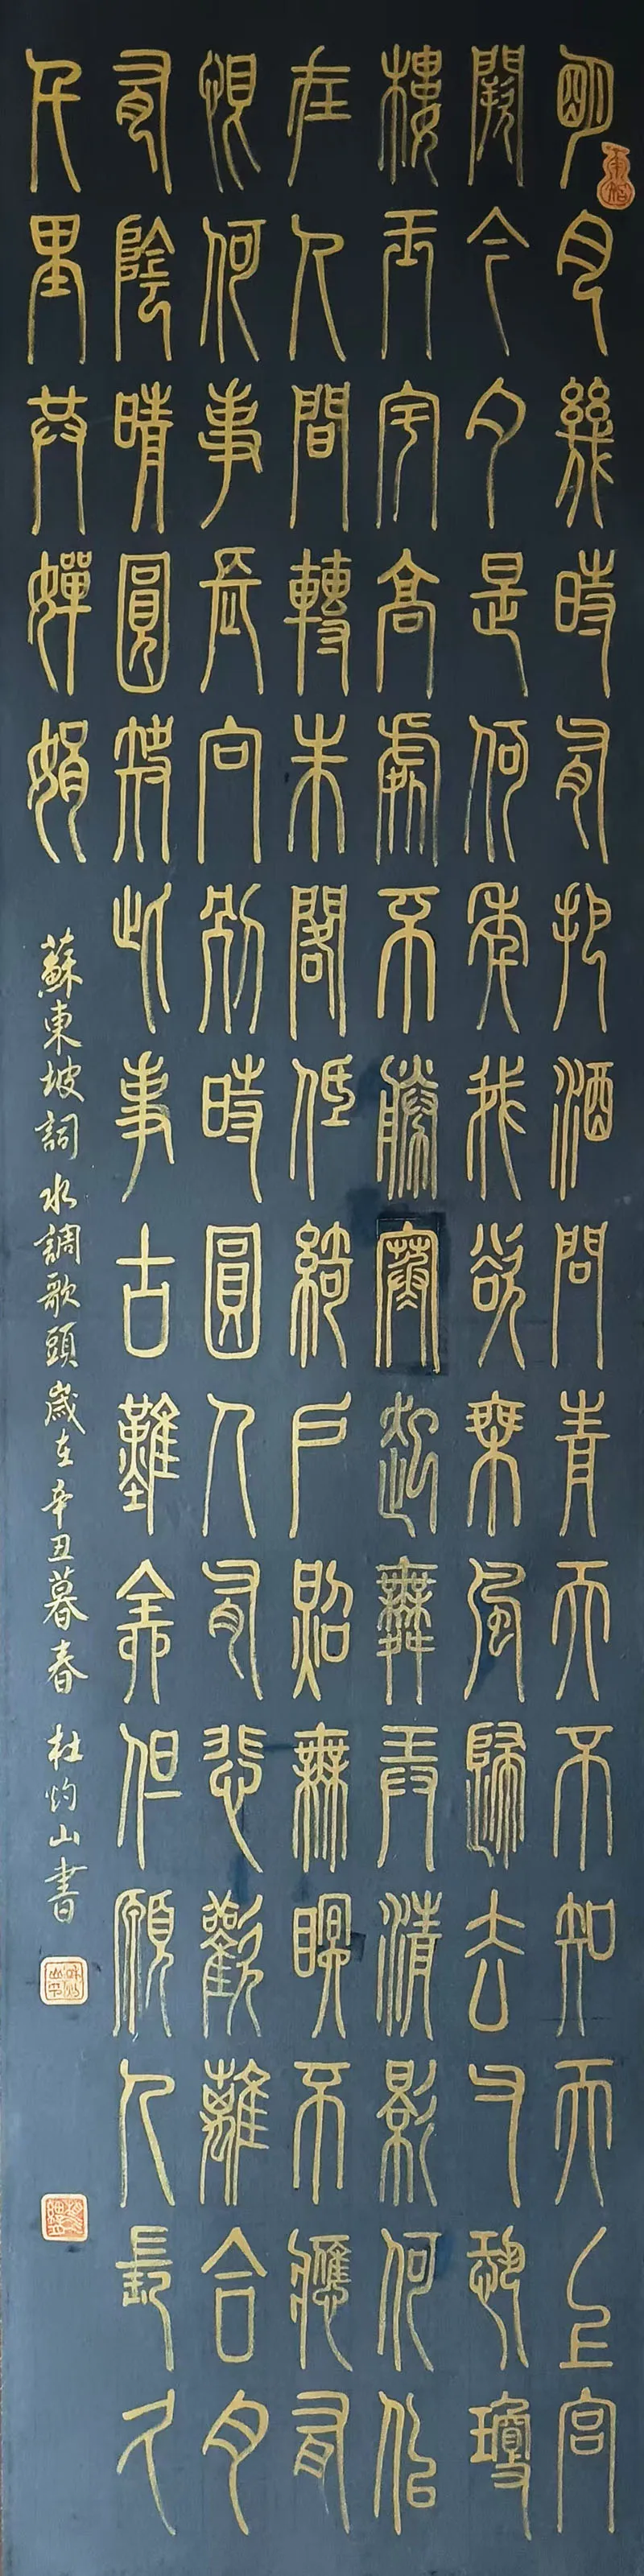 明月幾時有把酒問青天不知天上宮
闕今夕是何年我欲乘風歸去又恐瓊
樓玉宇高處不勝寒起舞弄清影何似
在人間轉朱閣低綺戶照無眠不應有
恨何事長向別時圓人有悲歡離合月
有陰晴圓缺此事古難全但願人長久
千里共嬋娟
蘇東坡詞水調歌頭歲在辛丑暮春 杜灼山書